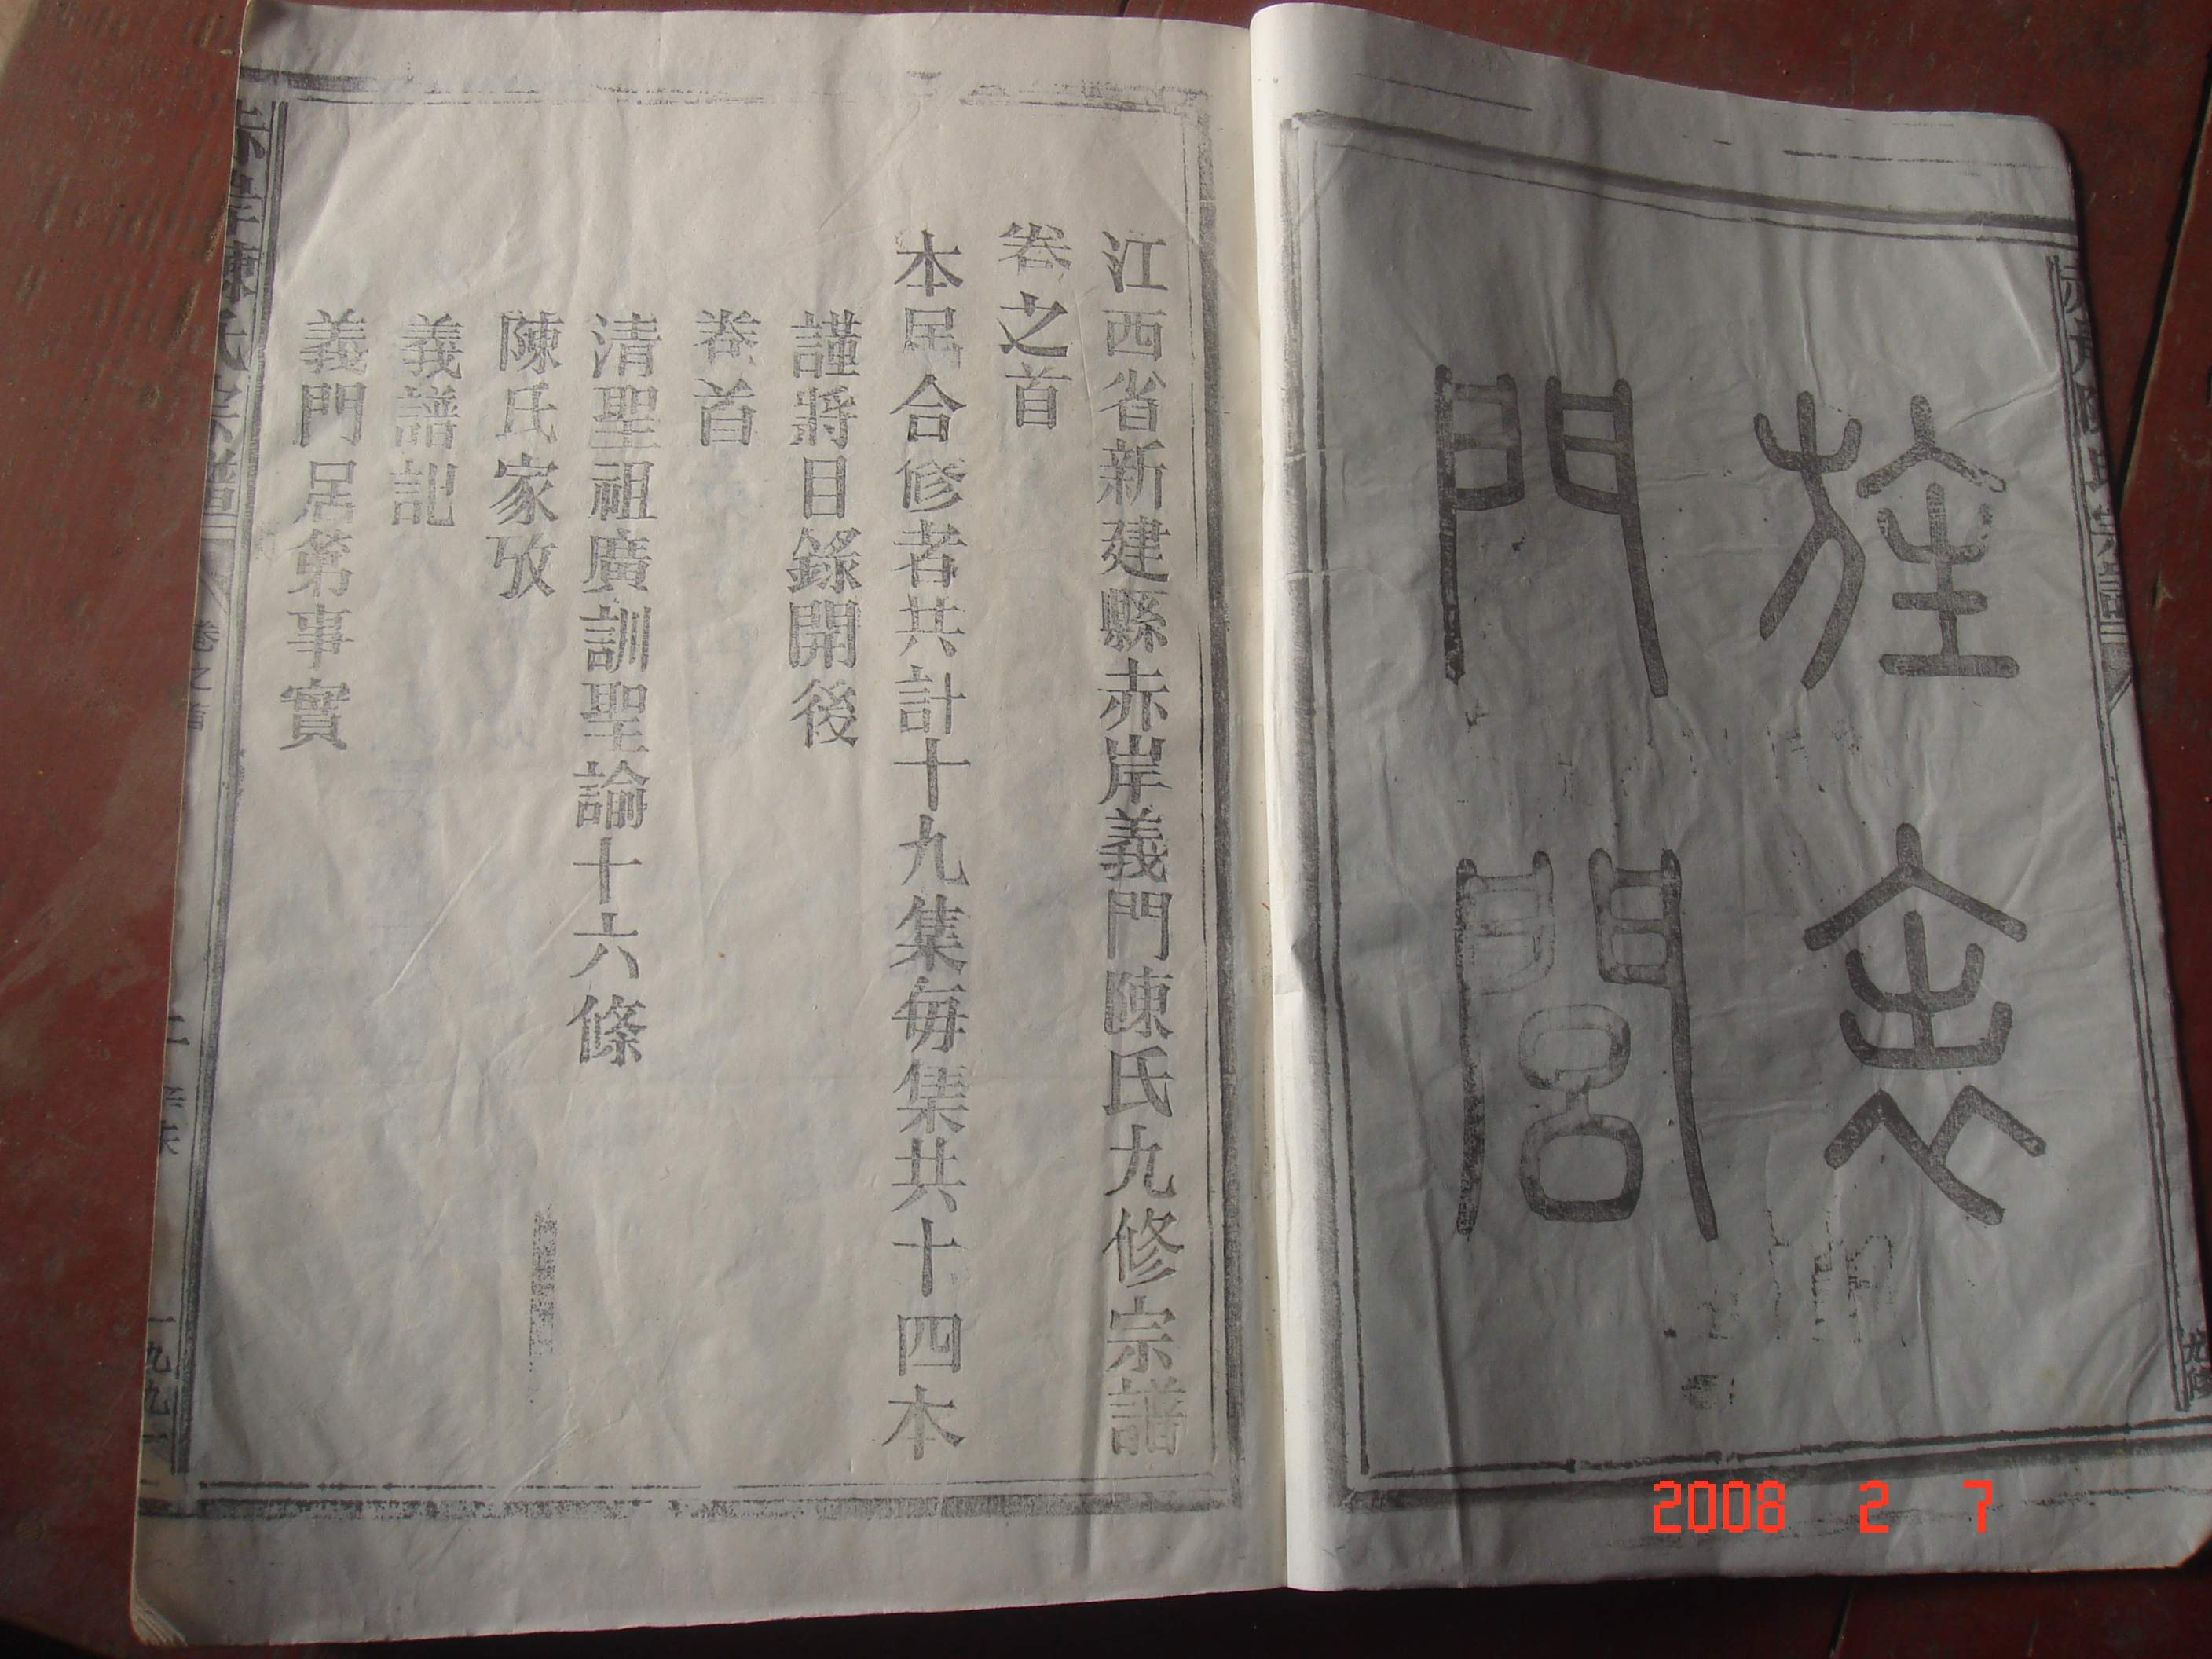 旌表
門閭
江西省新建縣赤岸義門陳氏九修宗譜
卷之首
本民合修者共計十九集每集共十四本
謹將目錄開後
卷首
清聖祖廣訓聖論十六條
陳氏家攷
義譜記
義門居第事實
赤岸陳氏宗譜
卷之首
二
九修
2008 2 7